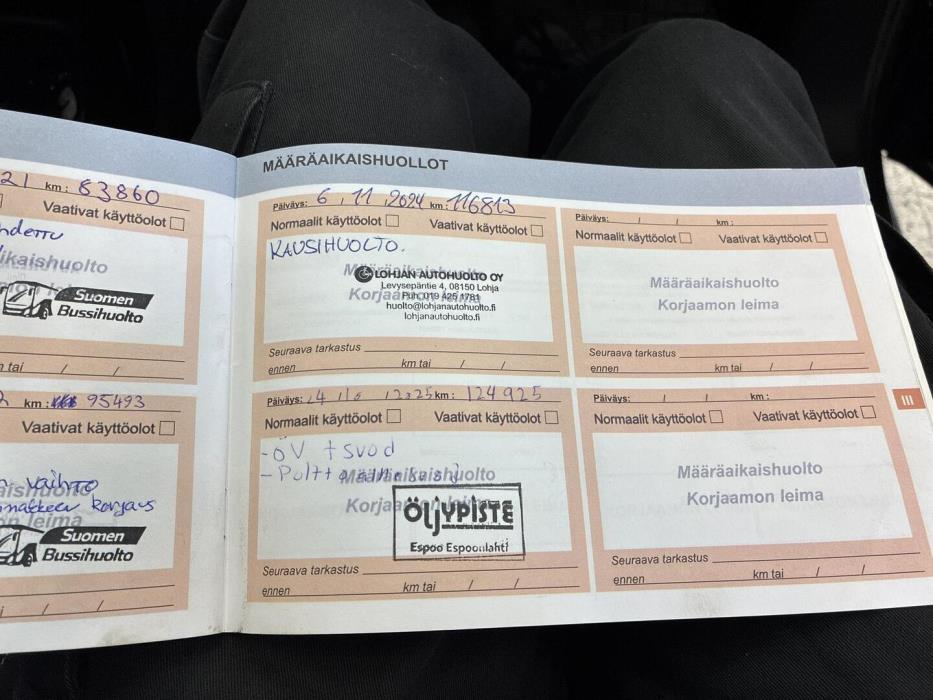 MÄÄRÄAIKAISHUOLLOT
21 km: 83860
Vaativat käyttöolot
ikaishuolto
Suomen
Bussihuolto
km tai / /
km: 95493
Vaativat käyttöolot
vaihto
aishuolto
korjaus
n leima
Suomen
Bussihuolto
/ /
Päiväys: 6 , 11 , 2024 km: 116813
Normaalit käyttöolot Vaativat käyttöolot
KAUSIHUOLTO.
Määräaikaishuolto
Korjaamon leima
LOHJAN AUTOHUOLTO OY
Levysepäntie 4, 08150 Lohja
Puh. 019 425 1781
huolto@lohjanautohuolto.fi
lohjanautohuolto.fi
Seuraava tarkastus
ennen km tai / /
Päiväys: / / km:
Normaalit käyttöolot Vaativat käyttöolot
Määräaikaishuolto
Korjaamon leima
Seuraava tarkastus
ennen km tai / /
Päiväys: 14 / 10 / 2025 km: 124925
Normaalit käyttöolot Vaativat käyttöolot
- ÖV + svod
Määräaikaishuolto
Korjaamon leima
ÖLJYPISTE
Espoo Espoonlahti
Seuraava tarkastus
ennen km tai / /
Päiväys: / / km:
Normaalit käyttöolot Vaativat käyttöolot
Määräaikaishuolto
Korjaamon leima
Seuraava tarkastus
ennen km tai / /
III